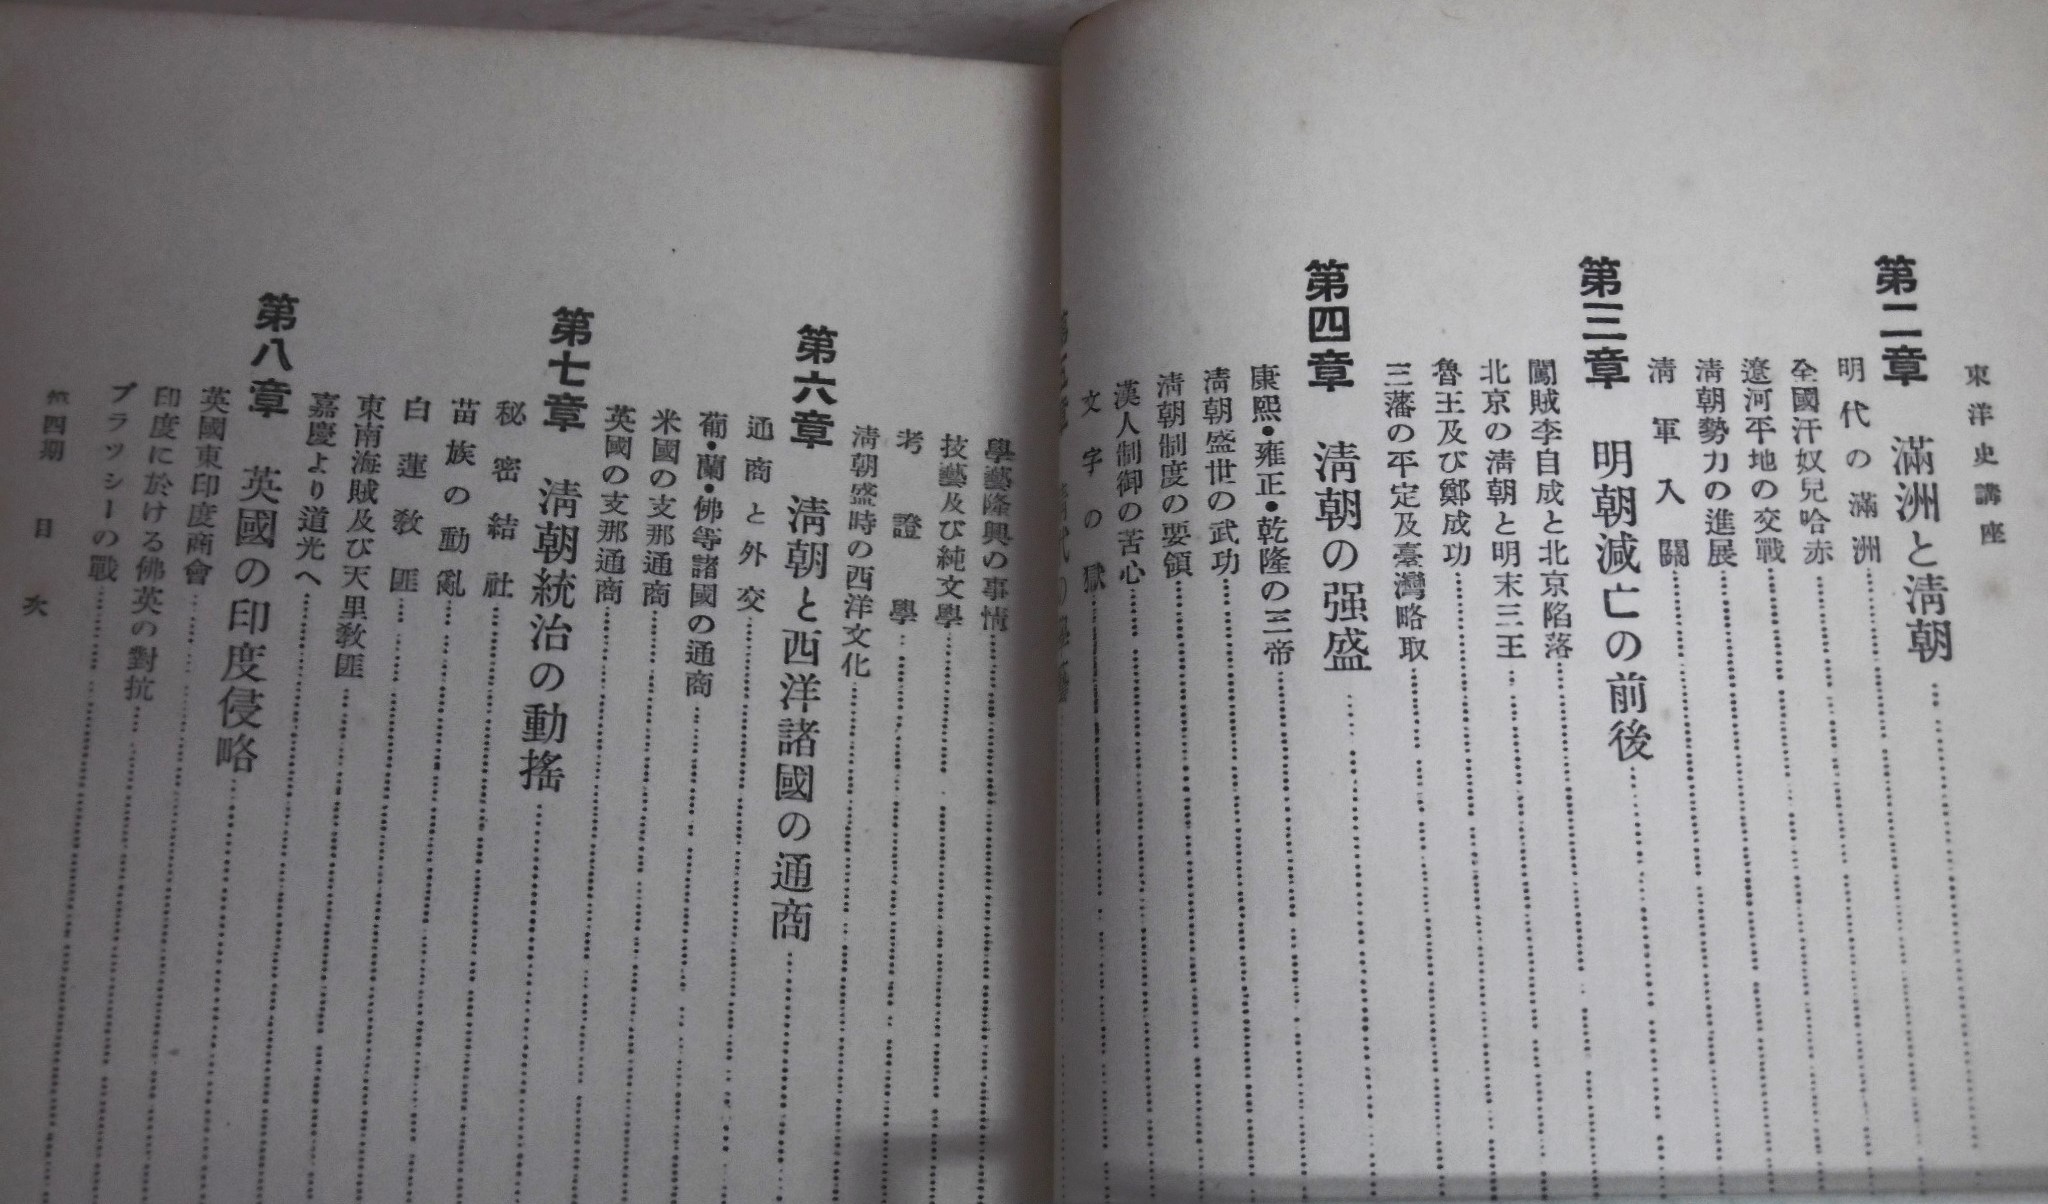 東洋史講座
第二章 滿洲と淸朝
明代の滿洲
全國汗奴兒哈赤
遼河平地の交戰
淸朝勢力の進展
淸軍入關
第三章 明朝滅亡の前後
闖賊李自成と北京陷落
北京の淸朝と明末三王
魯王及び鄭成功
三藩の平定及臺灣略取
第四章 淸朝の强盛
康熙・雍正・乾隆の三帝
淸朝盛世の武功
淸朝制度の要領
漢人制御の苦心
文字の獄
學藝隆興の事情
技藝及び純文學
考證學
淸朝盛時の西洋文化
第六章 淸朝と西洋諸國の通商
通商と外交
葡・蘭・佛等諸國の通商
米國の支那通商
英國の支那通商
第七章 淸朝統治の動搖
秘密結社
苗族の動亂
白蓮敎匪
東南海賊及び天里敎匪
嘉慶より道光へ
第八章 英國の印度侵略
英國東印度商會
印度に於ける佛英の對抗
プラッシーの戰
第四期 目次